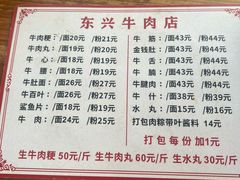 东兴牛肉店
牛肉粳：/面20元 /粉21元 牛 筋：/面43元 /粉44元
牛肉丸：/面19元 /粉20元 金钱肚：/面43元 /粉44元
牛 心：/面18元 /粉19元 牛 舌：/面43元 /粉44元
牛 腰：/面18元 /粉19元 牛 腩：/面43元 /粉44元
牛肚面：/面26元 /粉27元 牛腱肉：/面43元 /粉44元
牛百叶：/面26元 /粉27元 牛 什：/面38元 /粉39元
鲨鱼片：/面18元 /粉19元 水 丸：/面15元 /粉16元
牛 肉：/面24元 /粉25元 打包肉粽带叶酱料 14元
打包每份加1元
生牛肉粳 50元/斤 生牛肉丸 60元/斤 生水丸 30元/斤